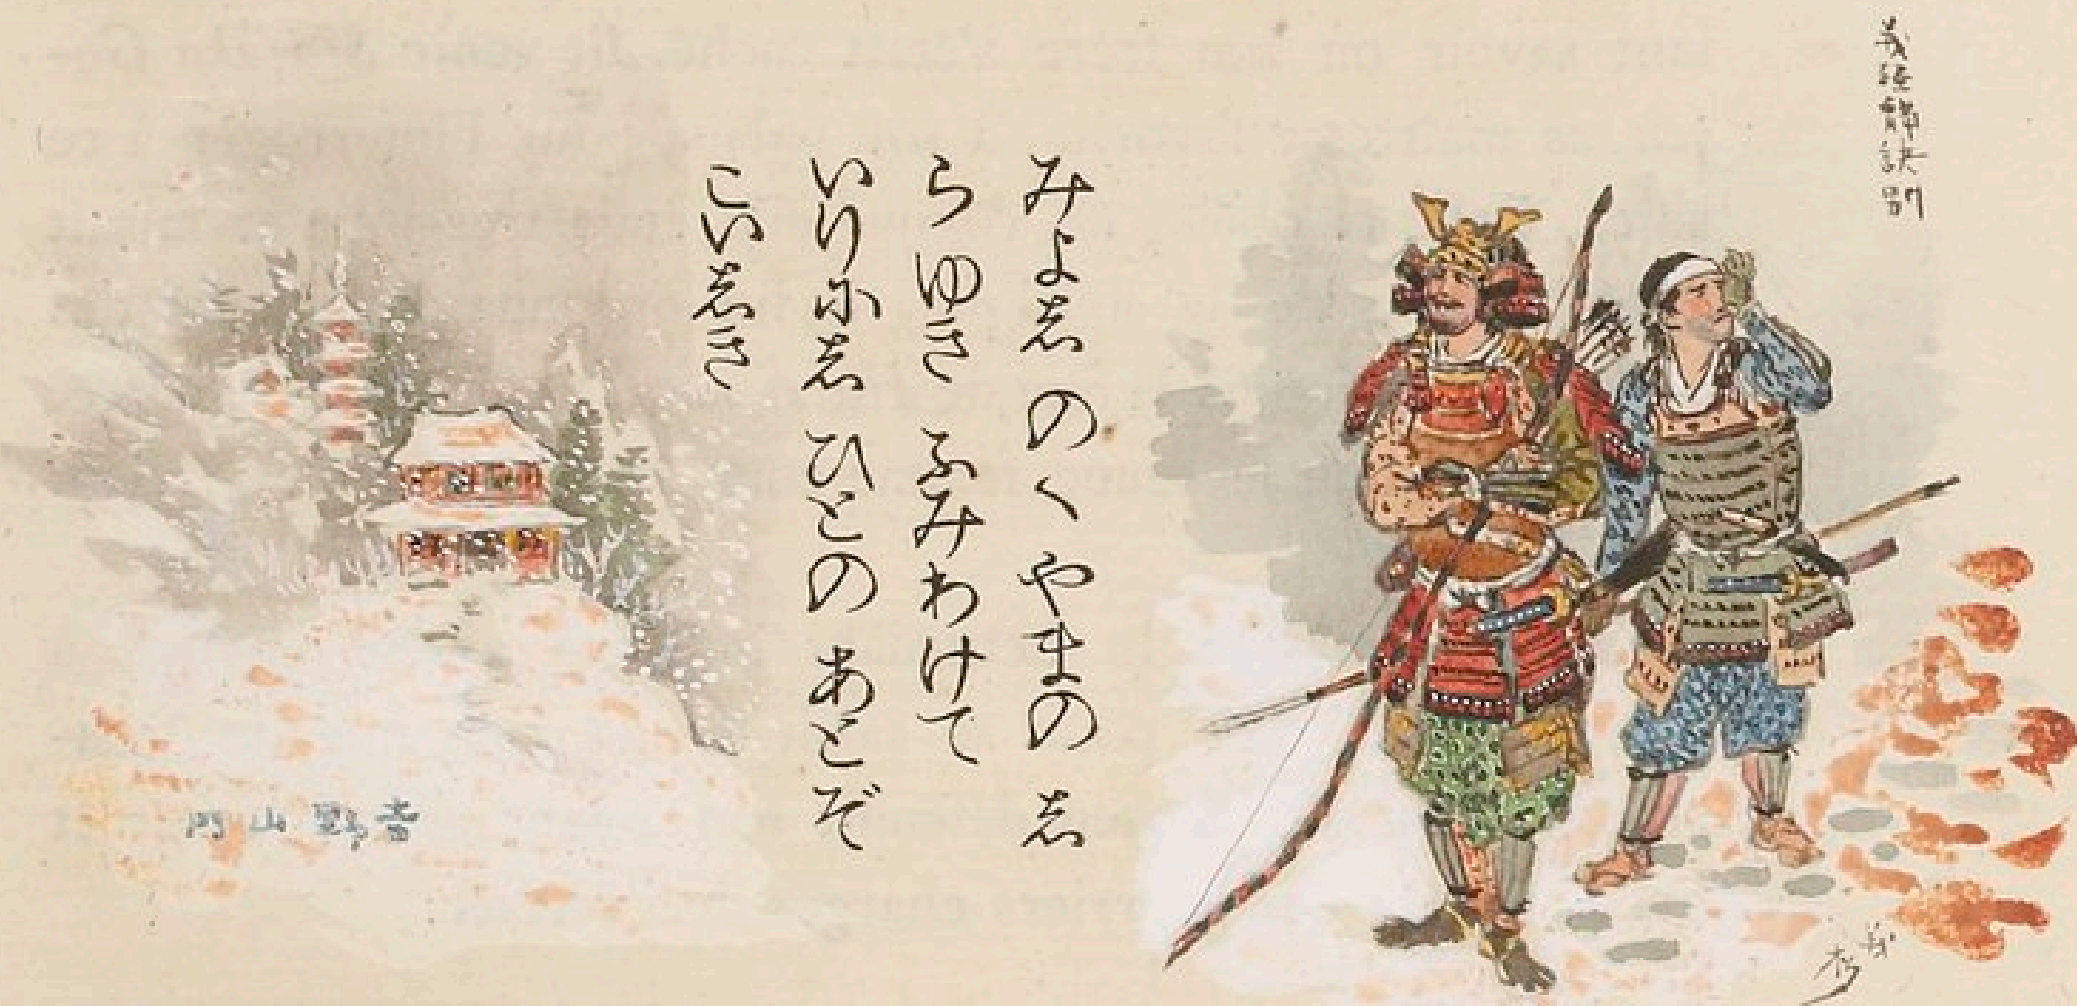 義経静訣別
みよ志のゝやまの志
らゆき ふみわけて
いりに志 ひとの あとぞ
こい志き
吉野山門